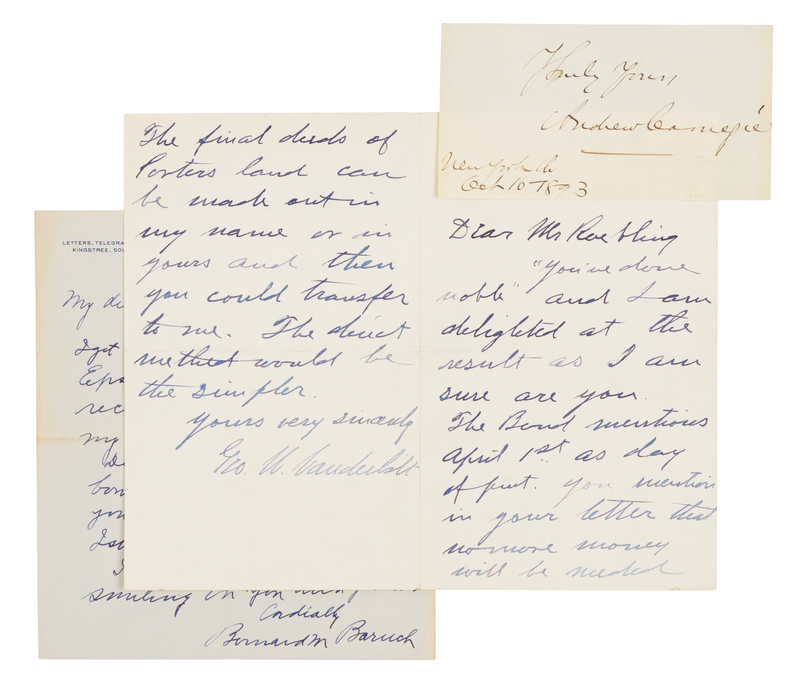 Truly Yours
Andrew Carnegie
New York
Oct 10 1893
The final deeds of
Porters land can
be made out in
my name or in
yours and then
you could transfer
to me. The direct
method would be
the simpler.
Yours very sincerely
Geo. W. Vanderbilt
Dear Mr Roebling
"you've done
noble" and I am
delighted at the
result as I am
sure are you.
The Bond mentions
April 1st as day
of you mention
in your letter that
no more money
will be needed
LETTERS, TELEGRA
KINGSTREE, SO
My de
I get
rec
my
you
smiling on you
Cordially
Bernard M Baruch